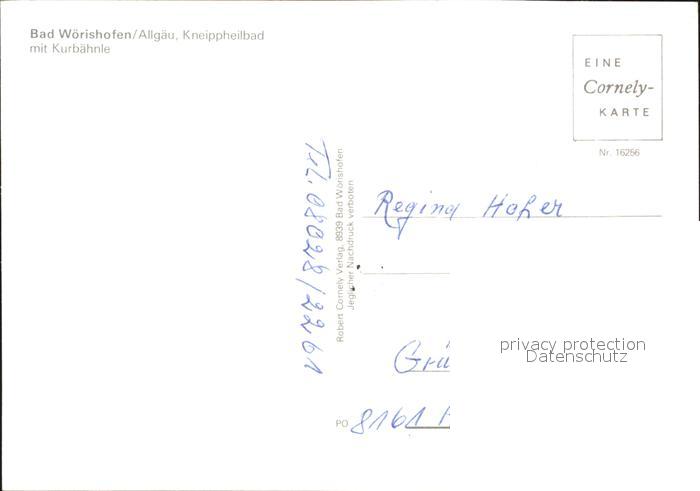 Bad Wörishofen/Allgäu, Kneippheilbad
mit Kurbähnle
EINE
Cornely-
KARTE
Nr. 16256
Tel. 08028/2261
Robert Cornely Verlag, 8939 Bad Wörishofen
Jeglicher Nachdruck verboten
Regina Hofer
Grü
privacy protection
Datenschutz
PO 8161